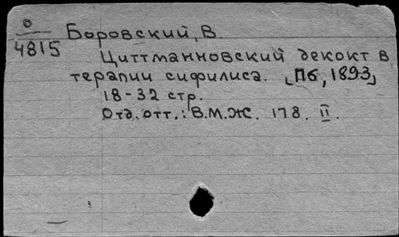 О
4815
Боровский, В.
Циттманновский декокт в
терапии сифилиса. [Пб, 1893]
18-32 стр.
Отд. отт.: В.М.Ж. 178. II.